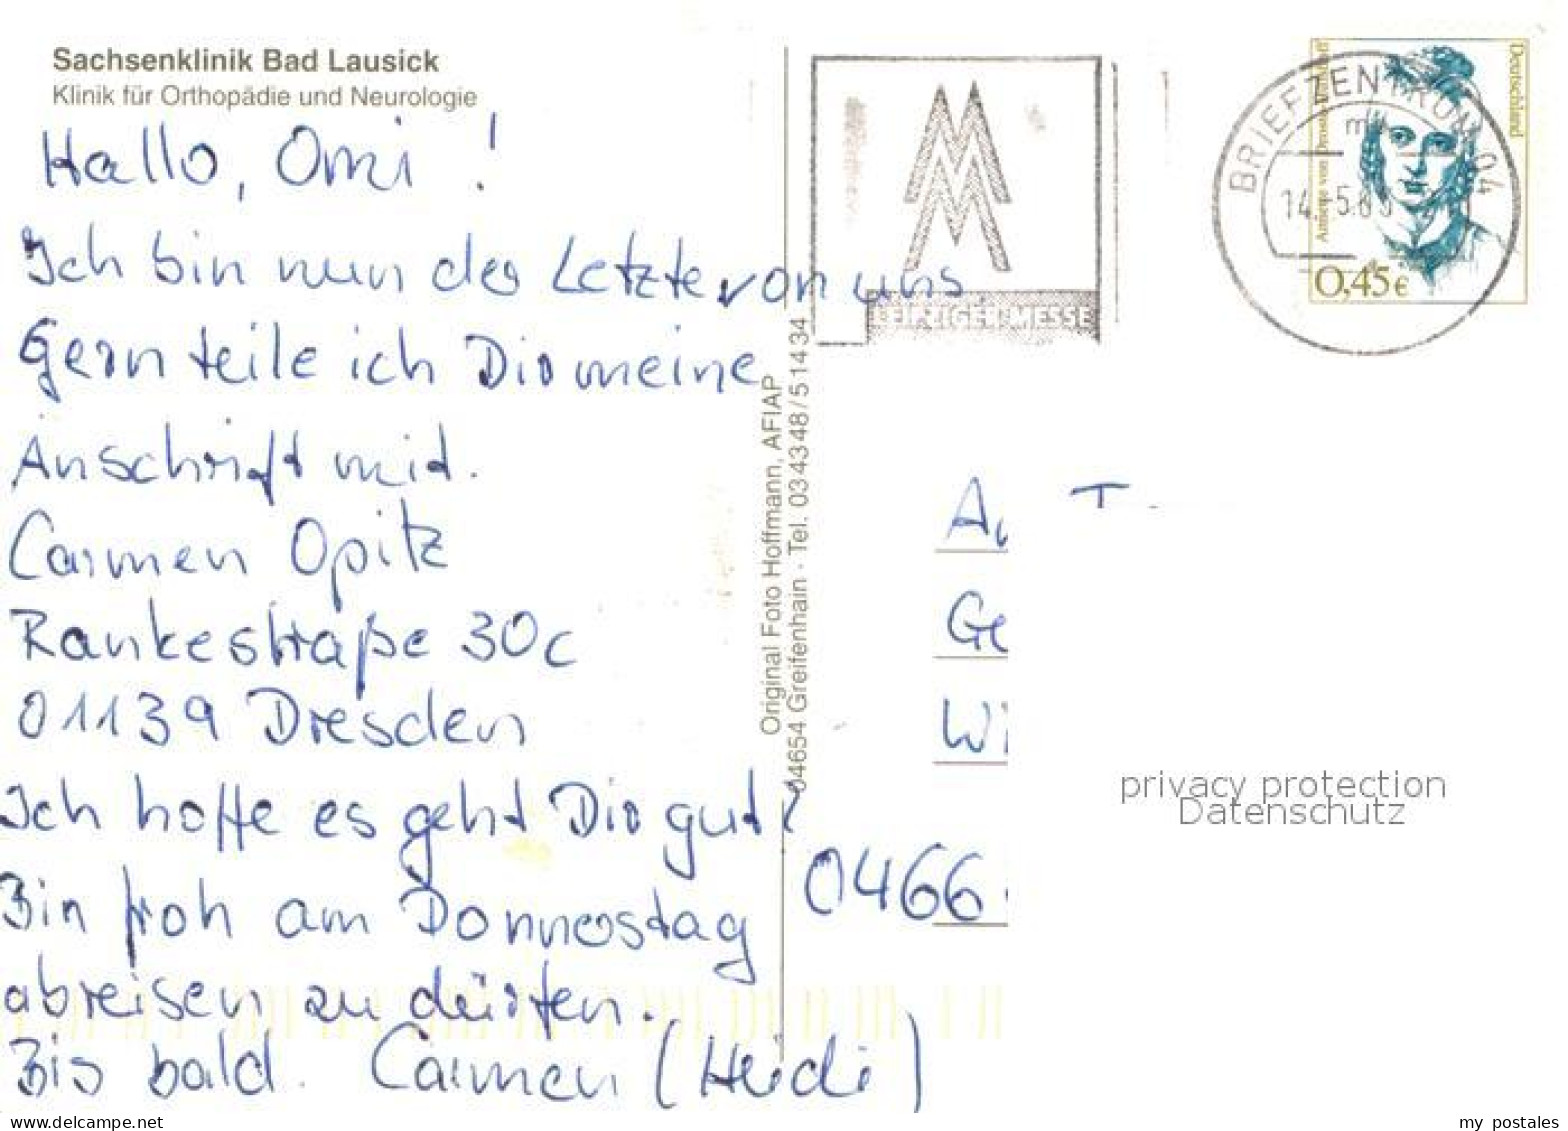 Sachsenklinik Bad Lausick
Klinik für Orthopädie und Neurologie
Hallo, Omi !
Ich bin nun der Letzte von uns
Gern teile ich Dir meine
Anschrift mit.
Carmen Opitz
Rankestraße 30c
01139 Dresden
Ich hoffe es geht Dir gut?
Bin froh am Donnerstag
abreisen zu dürfen.
Bis bald. Carmen (Heidi)
Original Foto Hoffmann, AFIAP
04654 Greifenhain · Tel. 034348/51434
LEIPZIGER MESSE
BRIEFZENTRUM 04
Deutschland
0,45€
Ge
Wi
0466
privacy protection
Datenschutz
www.delcampe.net
my_postales